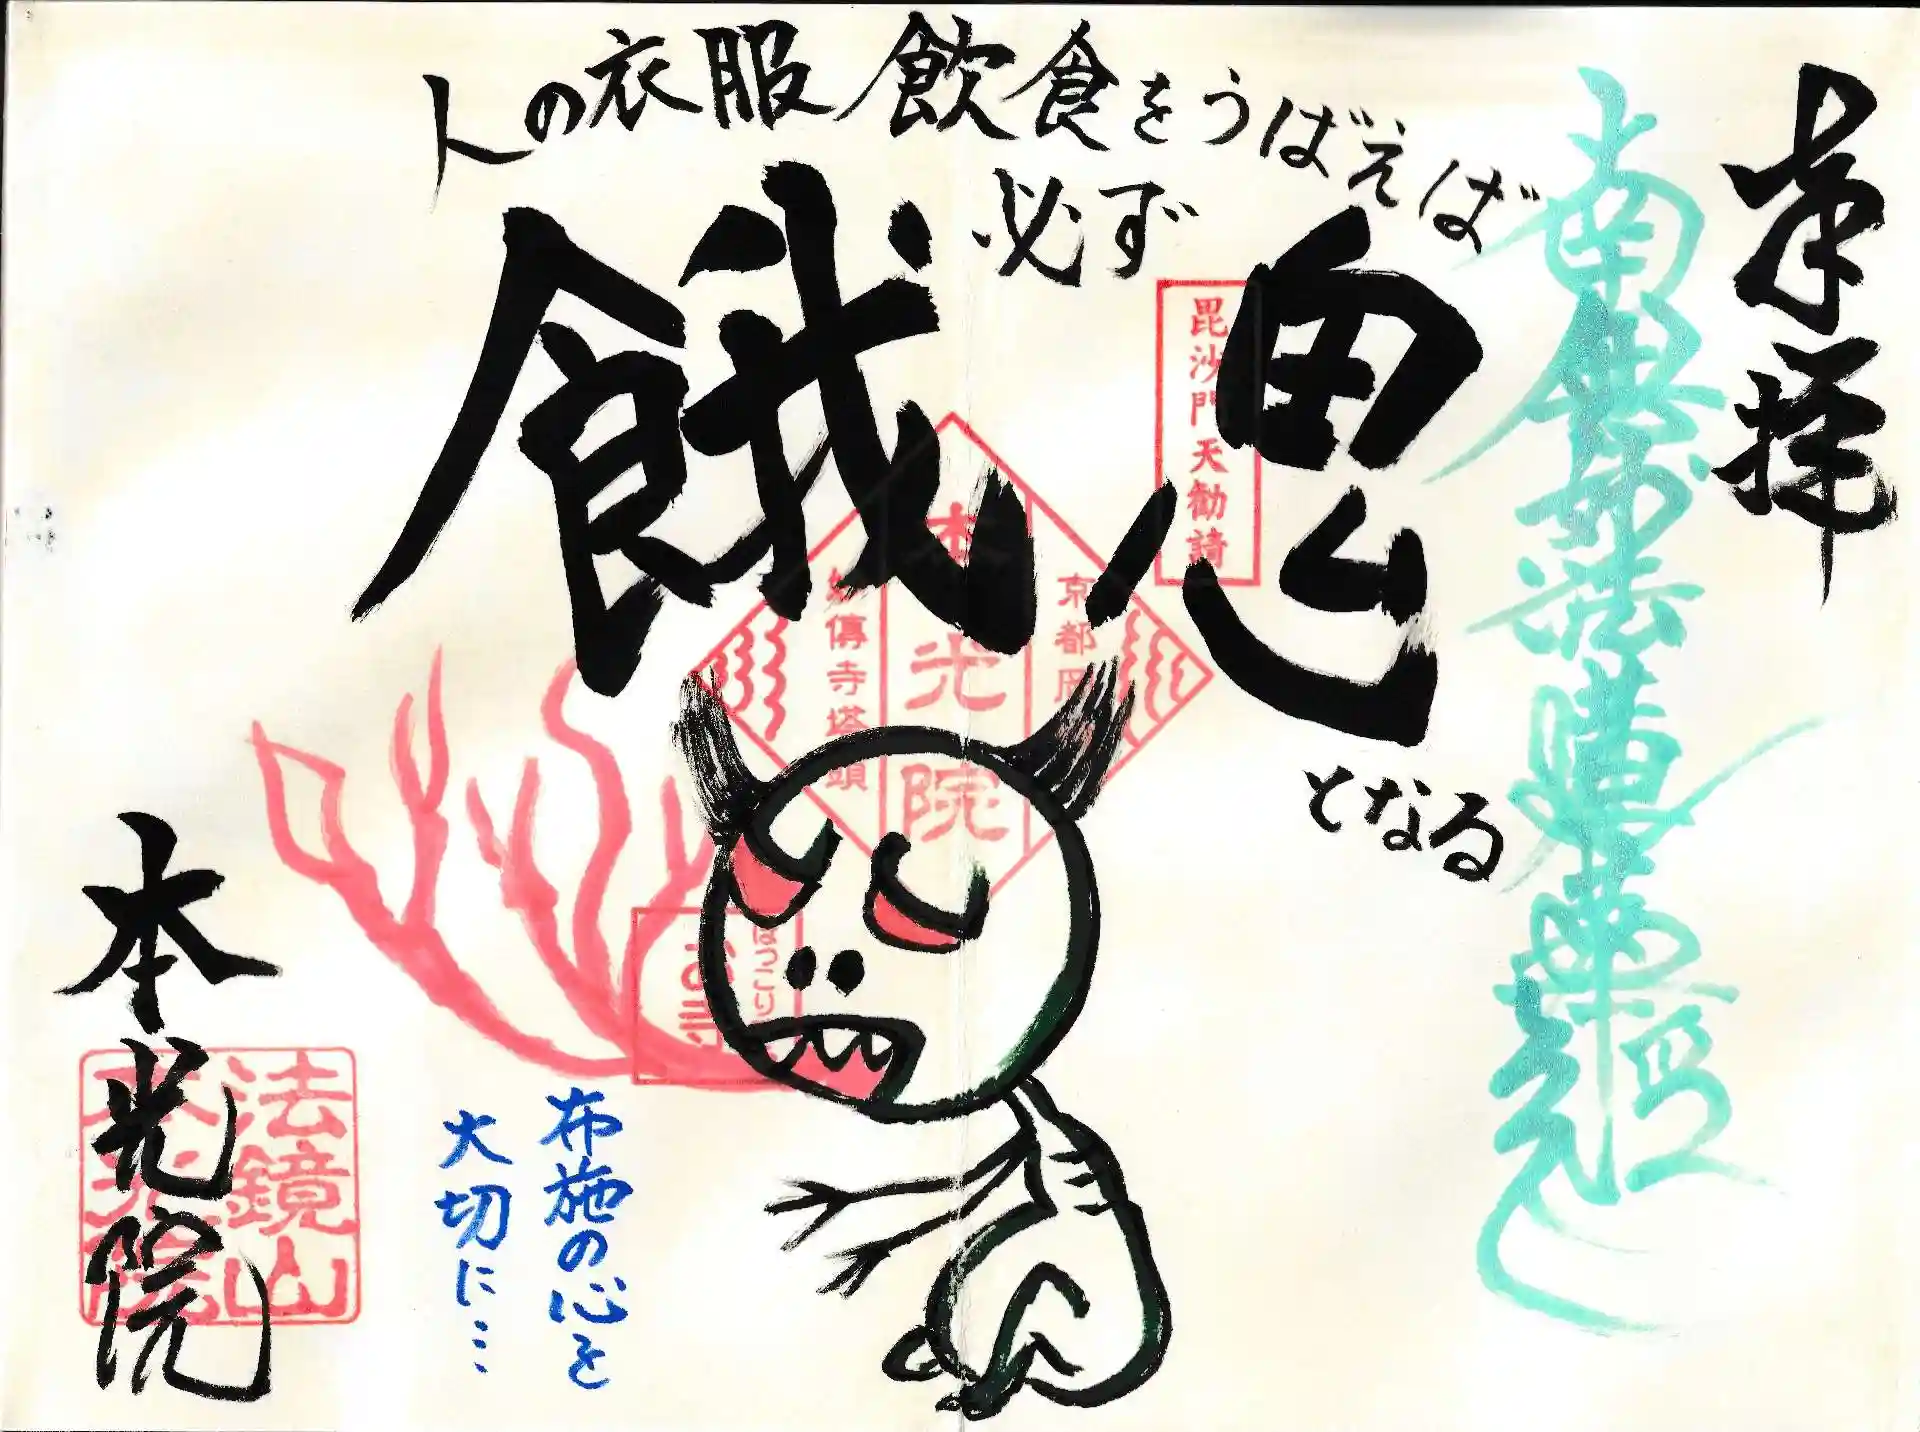 奉拝
南無妙法蓮華経
人の衣服飲食をうばえば
必ず
餓鬼
となる
毘沙門天勧請
京都岡
本光院
妙傳寺塔頭
ほっこり
お寺
布施の心を
大切に…
本光院
法鏡山
本光院